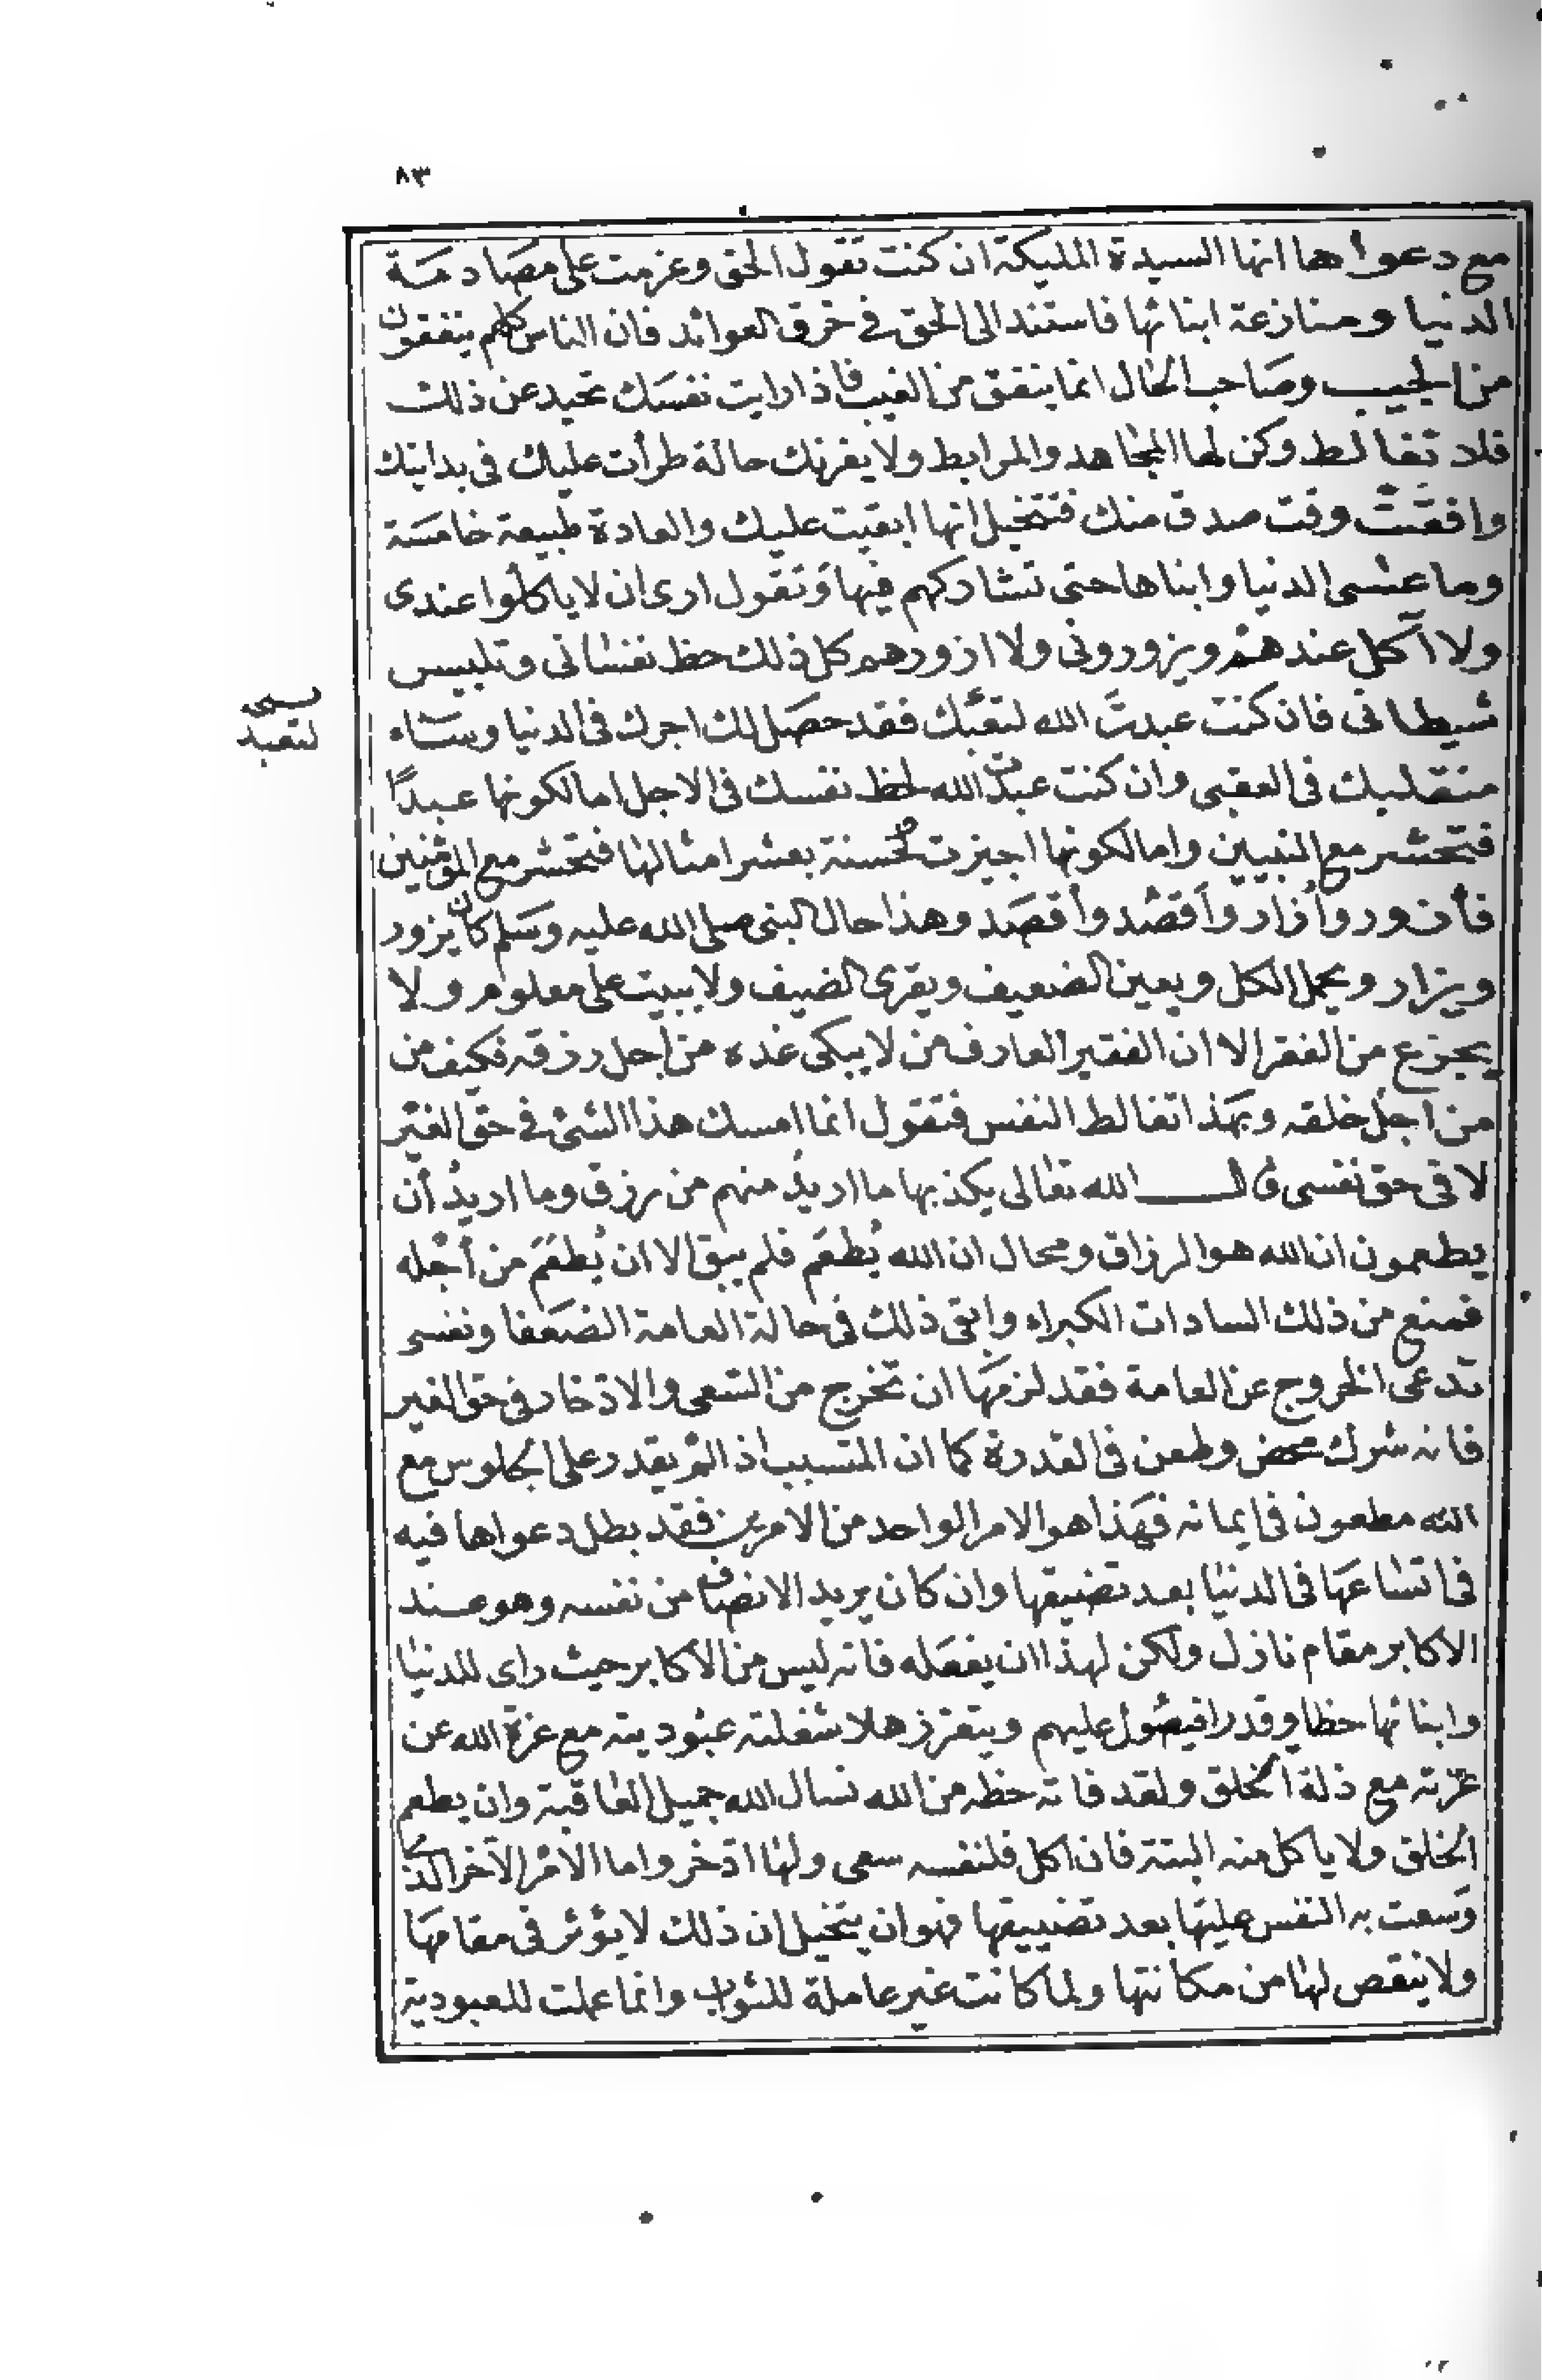 ٨٣
مع دعواها انها السيدة المليكة ان كنت تقول الحق وعزمت على مصادمة
الدنيا ومنازعة ابنائها فاستند الى الحق في خرق العوائد فان الناس كلهم ينفقون
من الجيب وصاحب الحال انما ينفق من الغيب فاذا رايت نفسك تحيد عن ذلك
فلا تغالط وكن لها المجاهد والمرابط ولا يغرنك حالة طرأت عليك في بدايتك
وافقت وقت صدق منك فتتخيل انها ابقيت عليك والعادة طبيعة خامسة
وما عسى الدنيا وابناها حتى تشاركهم فيها وتقول ارى ان لا ياكلوا عندى
ولا آكل عندهم ويزوروني ولا ازورهم كل ذلك حظ نفساني وتلبيس
شيطاني فان كنت عبدت الله لتعبك فقد حصل لك اجرك في الدنيا وساء
لتعبد
منقلبك في العقبى وان كنت عبدت الله لحظ نفسك في الاجل اما لكونها عبدًا
فتحشر مع النبيين واما لكونها اجيزت لحسنة بعشر امثالها فتحشر مع المؤمنين
فأن ور وأزار وأقصد وأقصد وهذا حال النبي صلى الله عليه وسلم كان يزور
ويزار ويحمل الكل ويعين الضعيف ويقرى الضيف ولا يبيت على معلوم ولا
يجزع من الفقر الا ان الفقير العارف من لا يبكى غده من اجل رزقه فكيف من
من اجل خلقه وبهذا تغالط النفس فتقول انما امسك هذا الشئ في حق الغير
لا في حق نفسى قال الله تعالى يكذبها ما اريد منهم من رزق وما اريد أن
يطعمون ان الله هو الرزاق ومحال ان الله يُطعَم فلم يبق الا ان يُطعَم من أجله
فمنع من ذلك السادات الكبراء وابقى ذلك في حالة العامة الضعفا ونفسى
تدعى الخروج عن العامة فقد لزمها ان تخرج من السعى والادخار في حق الغير
فانه شرك محض وطعن في القدرة كما ان المتسبب اذ الم يقدر على الجلوس مع
الله مطعون في ايمانه فهذا هو الامر الواحد من الامرين فقد بطل دعواها فيه
في اتساعها في الدنيا بعد تضييقها وان كان يريد الانصاف من نفسه وهو عند
الاكابر مقام نازل ولكن لهذا ان يفعله فانه ليس من الاكابر حيث راى للدنيا
وابنائها حظا وقدرا فيصول عليهم ويتعزز هلا شغلته عبوديته مع عزة الله عن
عزته مع ذلة الخلق ولقد فاته حظه من الله نسال الله جميل العاقبة وان يطعم
الخلق ولا ياكل منه البتة فان اكل فلنفسه سعى ولها ادخر واما الامر الآخر الذى
وسعت به النفس عليها بعد تضييقها فهو ان يتخيل ان ذلك لا يؤثر في مقامها
ولا ينقص لها من مكانتها ولما كانت غير عاملة للثواب وانما عملت للعبودية